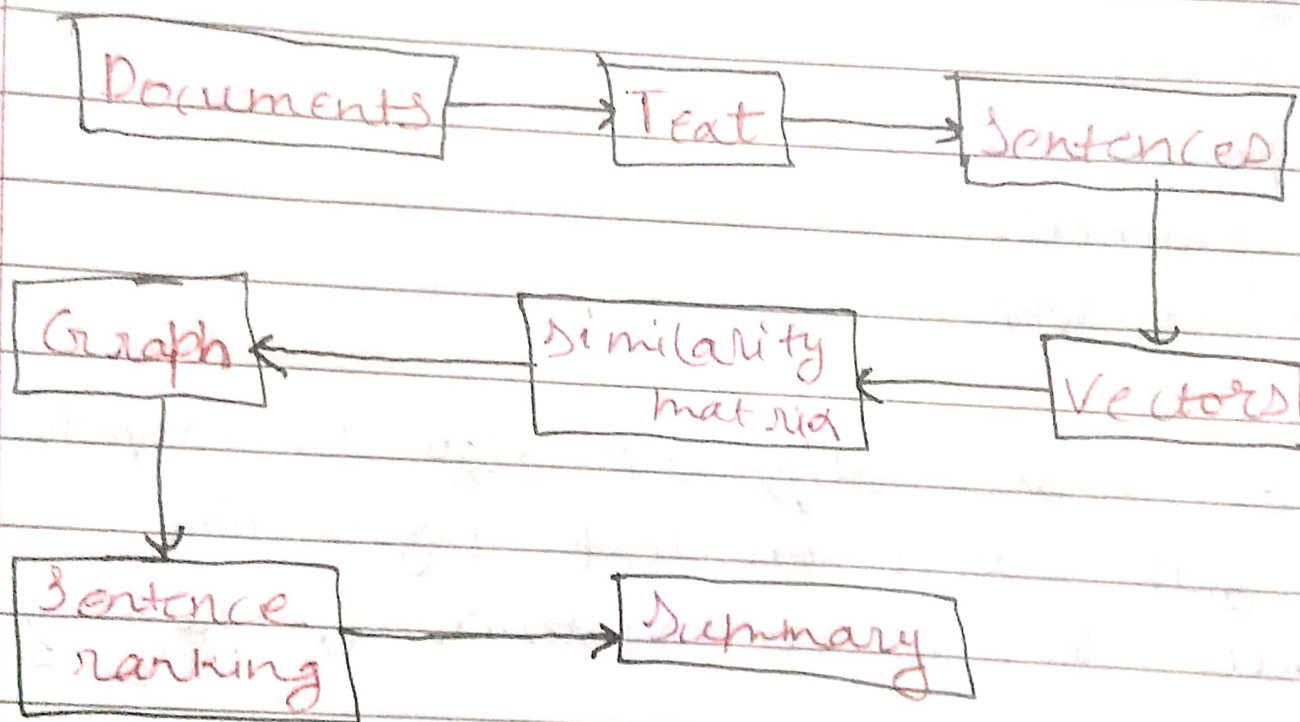 Documents
Text
Sentences
Graph
Similarity
matrix
Vectors
Sentence
ranking
Summary